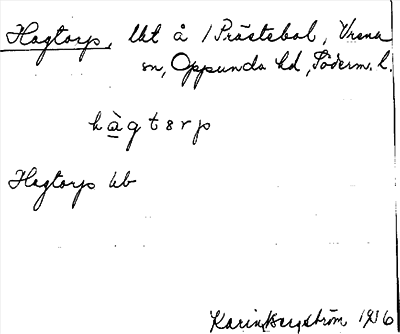 Hagtorp, lht å 1 Prästebol, Vrena
sn, Oppunda hd, Söderm. l.
hàgtərp
Hagtorp hb
Karin Bergström 1936